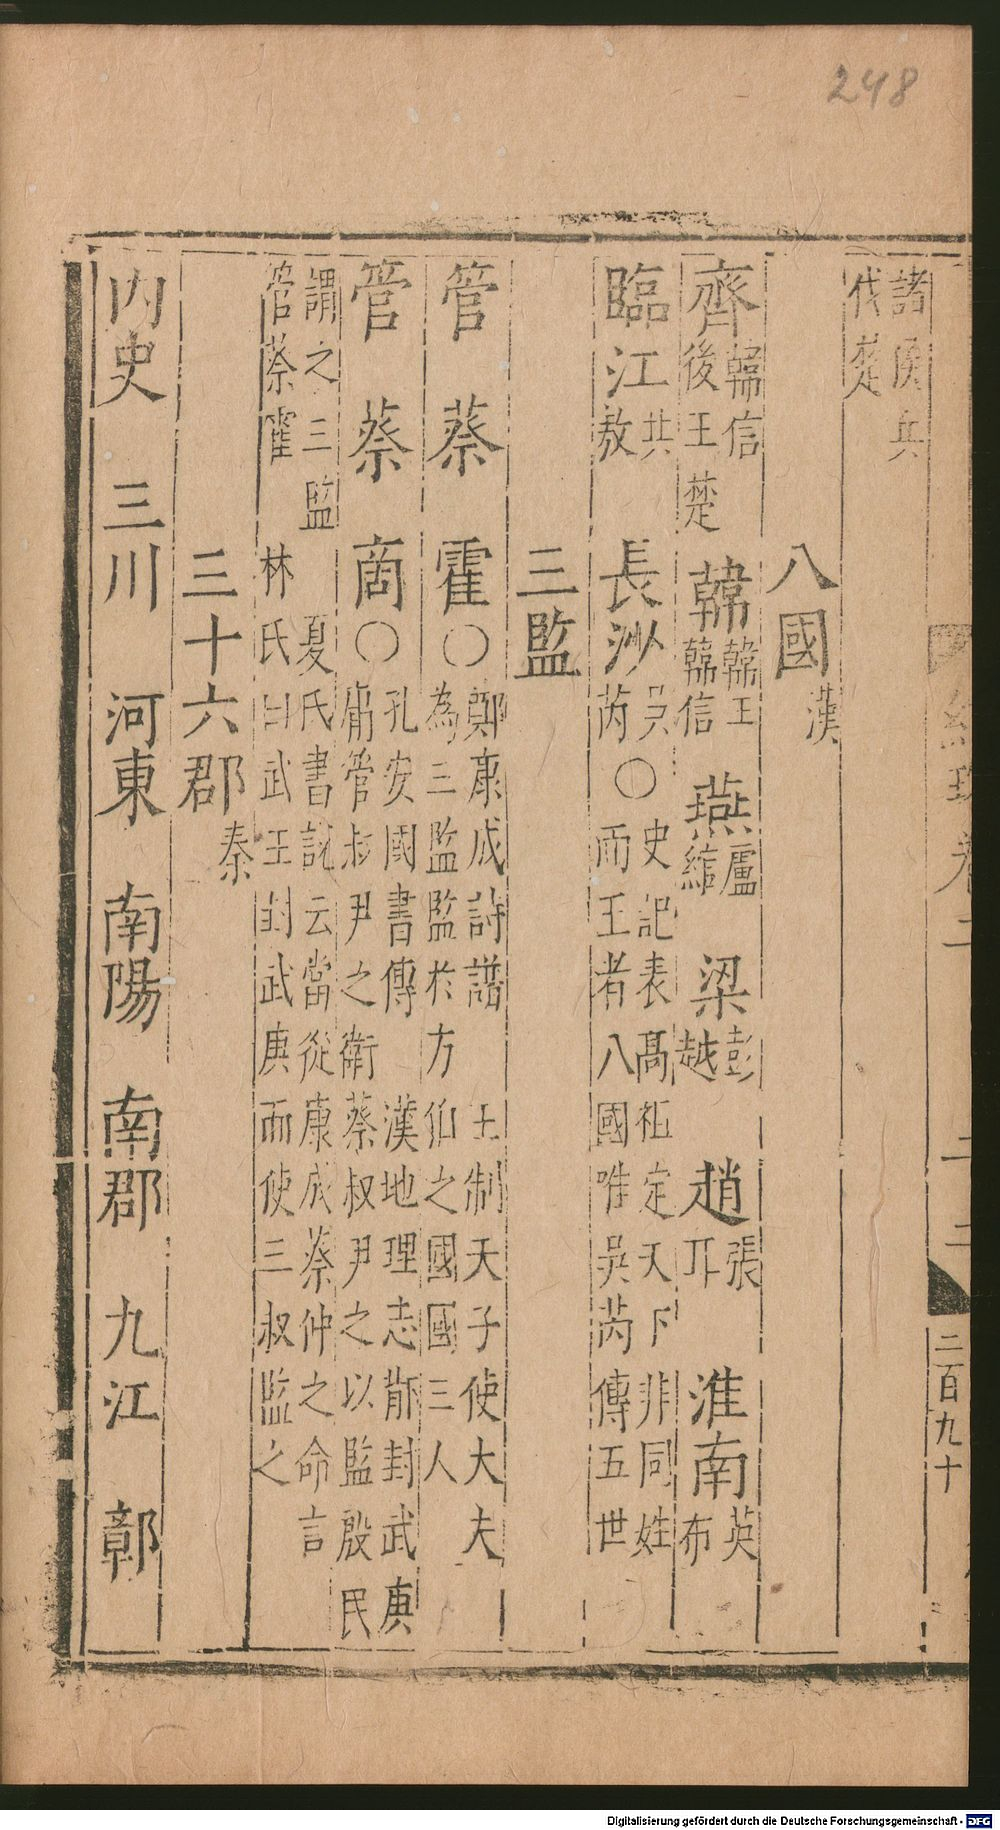 248
諸侯兵
伐楚
八國漢
齊韓信後王楚 韓韓王韓信 燕盧綰 梁彭越 趙張耳 淮南英布
臨江共敖 長沙吳芮○史記表高祖定天下非同姓而王者八國唯吳芮傳五世
三監
管 蔡 霍○鄭康成詩譜 王制天子使大夫為三監監於方伯之國國三人
管 蔡 商○孔安國書傳 漢地理志 封武庚管叔尹之衛蔡叔尹之以監殷民
謂之三監 夏氏書說云當從康成蔡仲之命言管蔡霍 林氏曰武王封武庚而使三叔監之
三十六郡秦
內史 三川 河東 南陽 南郡 九江 鄣
卷二
二百九十
Digitalisierung gefördert durch die Deutsche Forschungsgemeinschaft - DFG